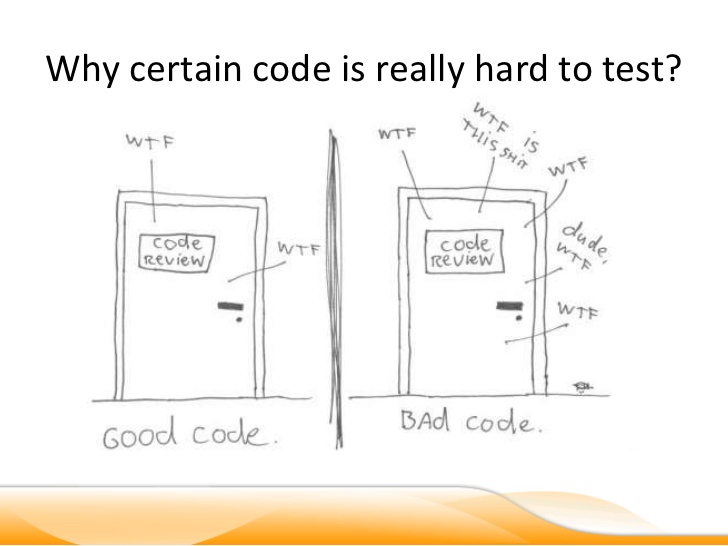 Why certain code is really hard to test?
WTF
CODE
REVIEW
WTF
GOOD CODE.
WTF
WTF IS
THIS SHIT
WTF
dude,
WTF
WTF
CODE
REVIEW
BAd code.